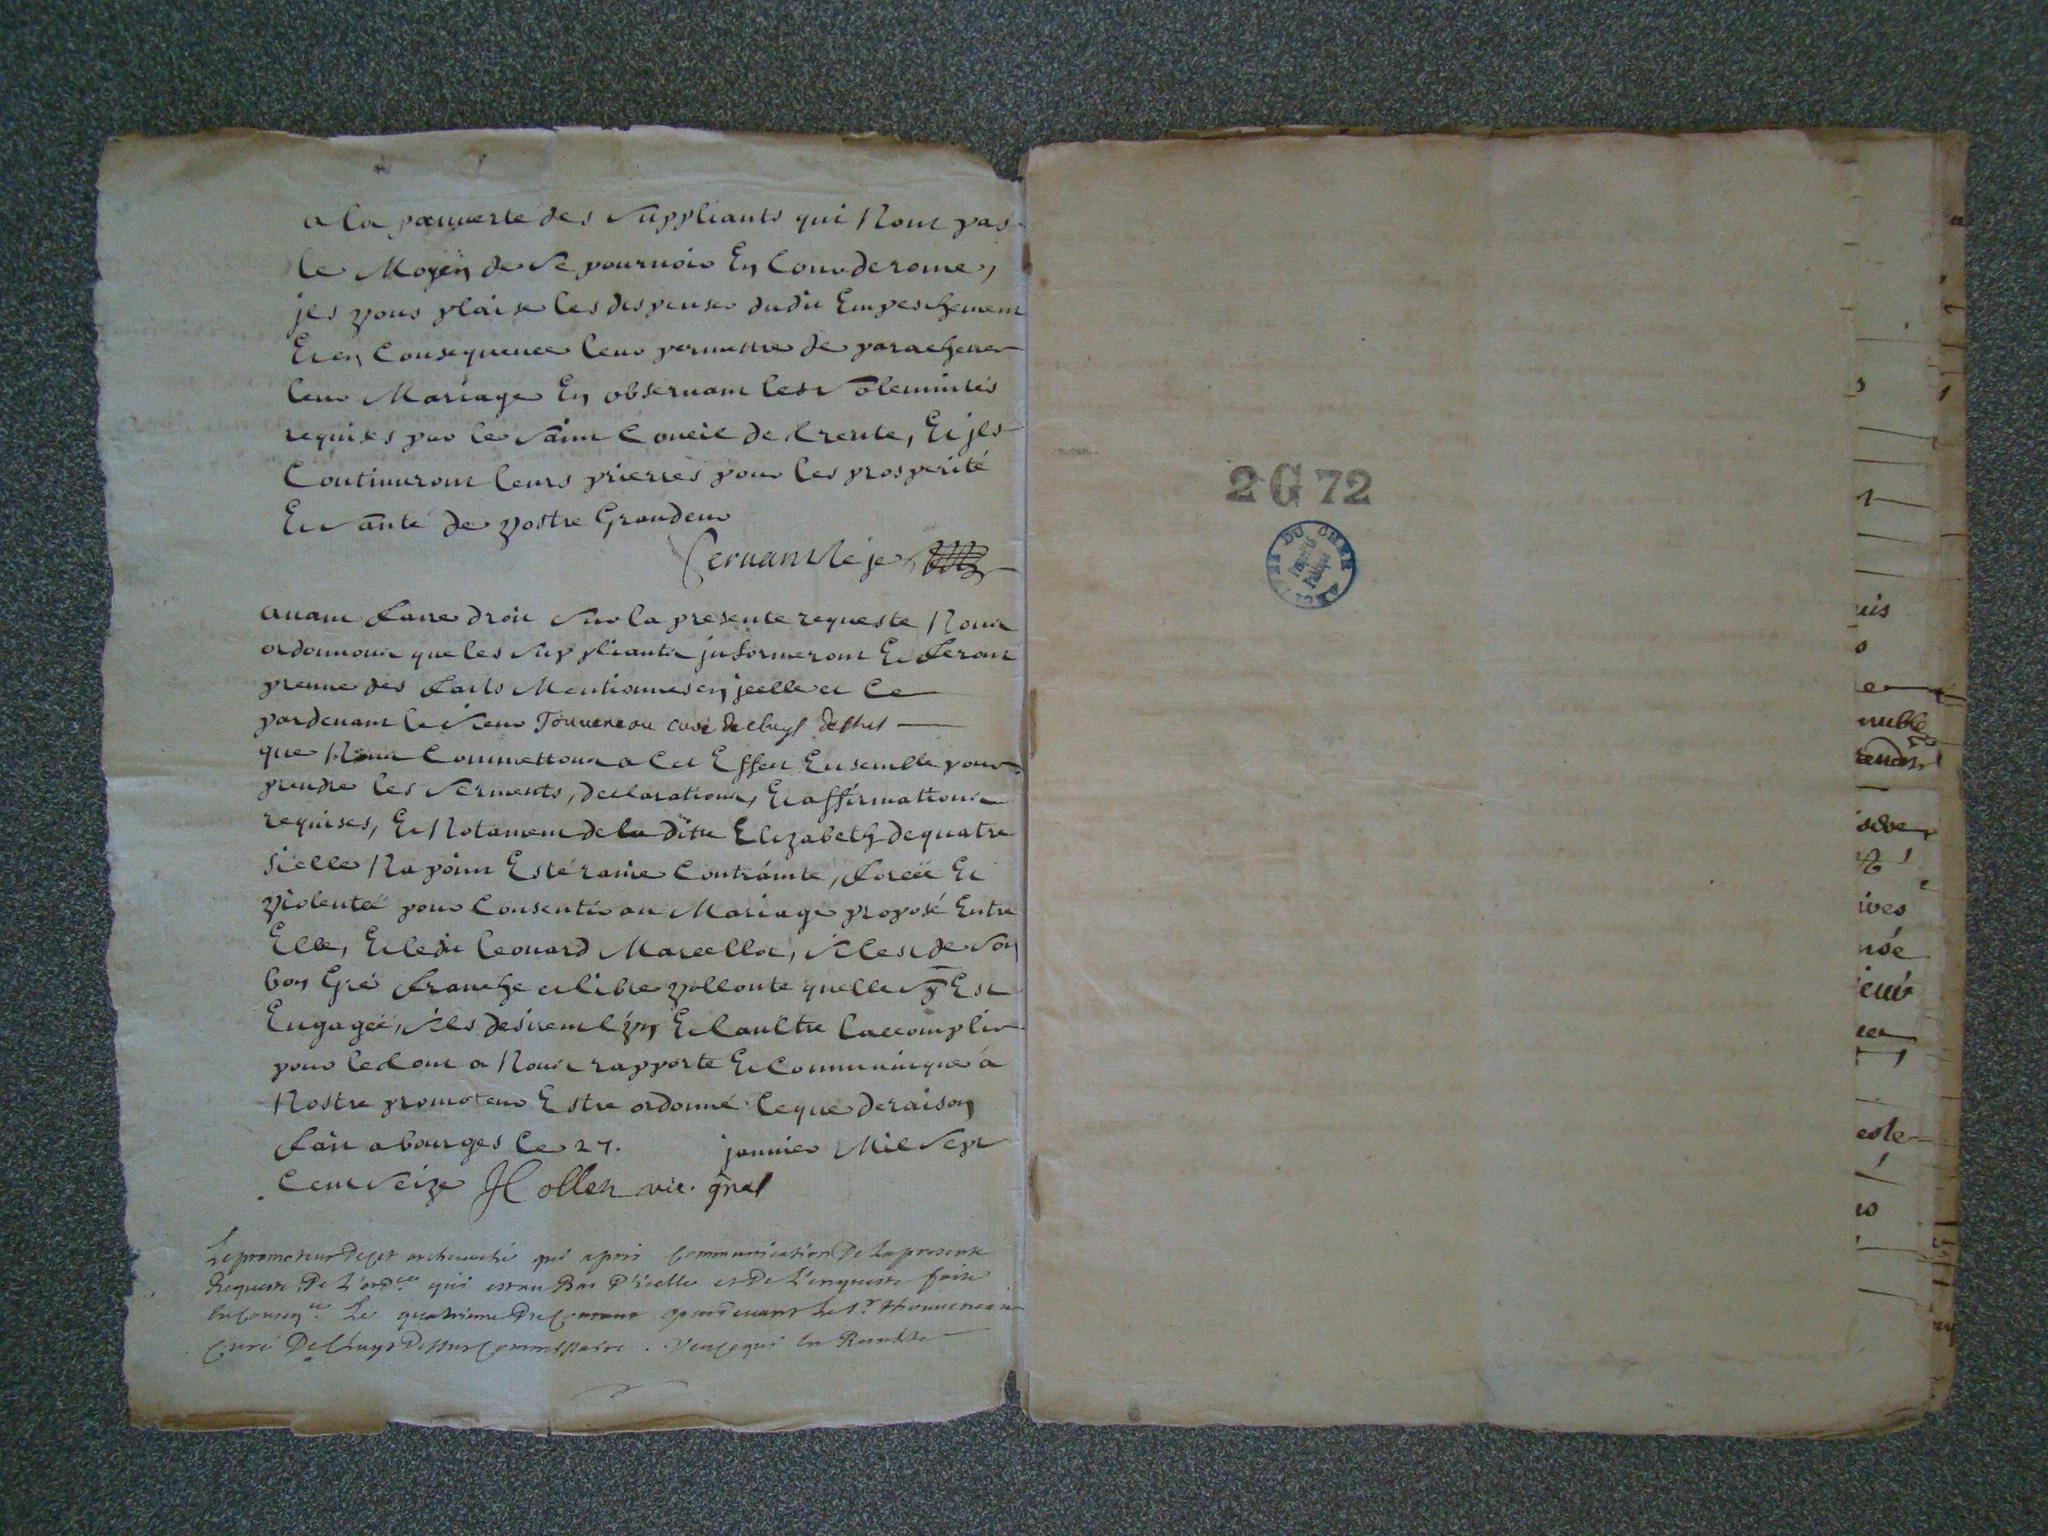 a la pauverté des suppliants qui Nont pas
le Moyen de se pournoir En Cour de rome,
jls vous plaise les dispenser dudit Empeschement
Et en Consequence leur permettre de parachever
leur Mariage En observant les solemnités
requises par le saint Concile de trente, Et jls
Continuront leurs prierres pour les prosperité
Et santé de vostre Grandeur
avant faire droit sur la presente requeste Nous
ordonnons que les suppliants jnformeront Et feront
preuve des faits Mentionnes en jcelle et Ce
pardevant le sieur Touveneau curé de cluys dessus
que Nous Commettons a Cet Effet Ensemble pour
prendre les serments, declarations, Et affirmations
requises, Et Notament de la ditte Elizabeth de quatre
si elle Na point Esté ravie Contrainte, forcée Et
violentée pour Consentir au Mariage proposé Entre
Elle, Et ledit leonard Marcellot, si Cest de son
bon Gré franche et libre vollonté quelle sy Est
Engagée, sils desirent lvn Et laultre laccomplir
pour le tout a Nous rapporté Et Communiqué a
Nostre promoteur Estre ordonné Ce que de raison
fait a bourges le 27. janvier Mil sept
Cent seize Hollen vic. gnal
Le promoteur De Cet archevesché qui a pris Communication De La presente
Requeste, De L'ord.ce qui est au Bas D'icelle et De L'enqueste faite
En Conseq.ce Le quatrieme Du Courant pardevant le Sr. Thouveneau
Curé De Cluys Dessus Commissaire. Veu Ce qui En Resulte
2 G 72
DU CHER
uis
nuble
ives
este